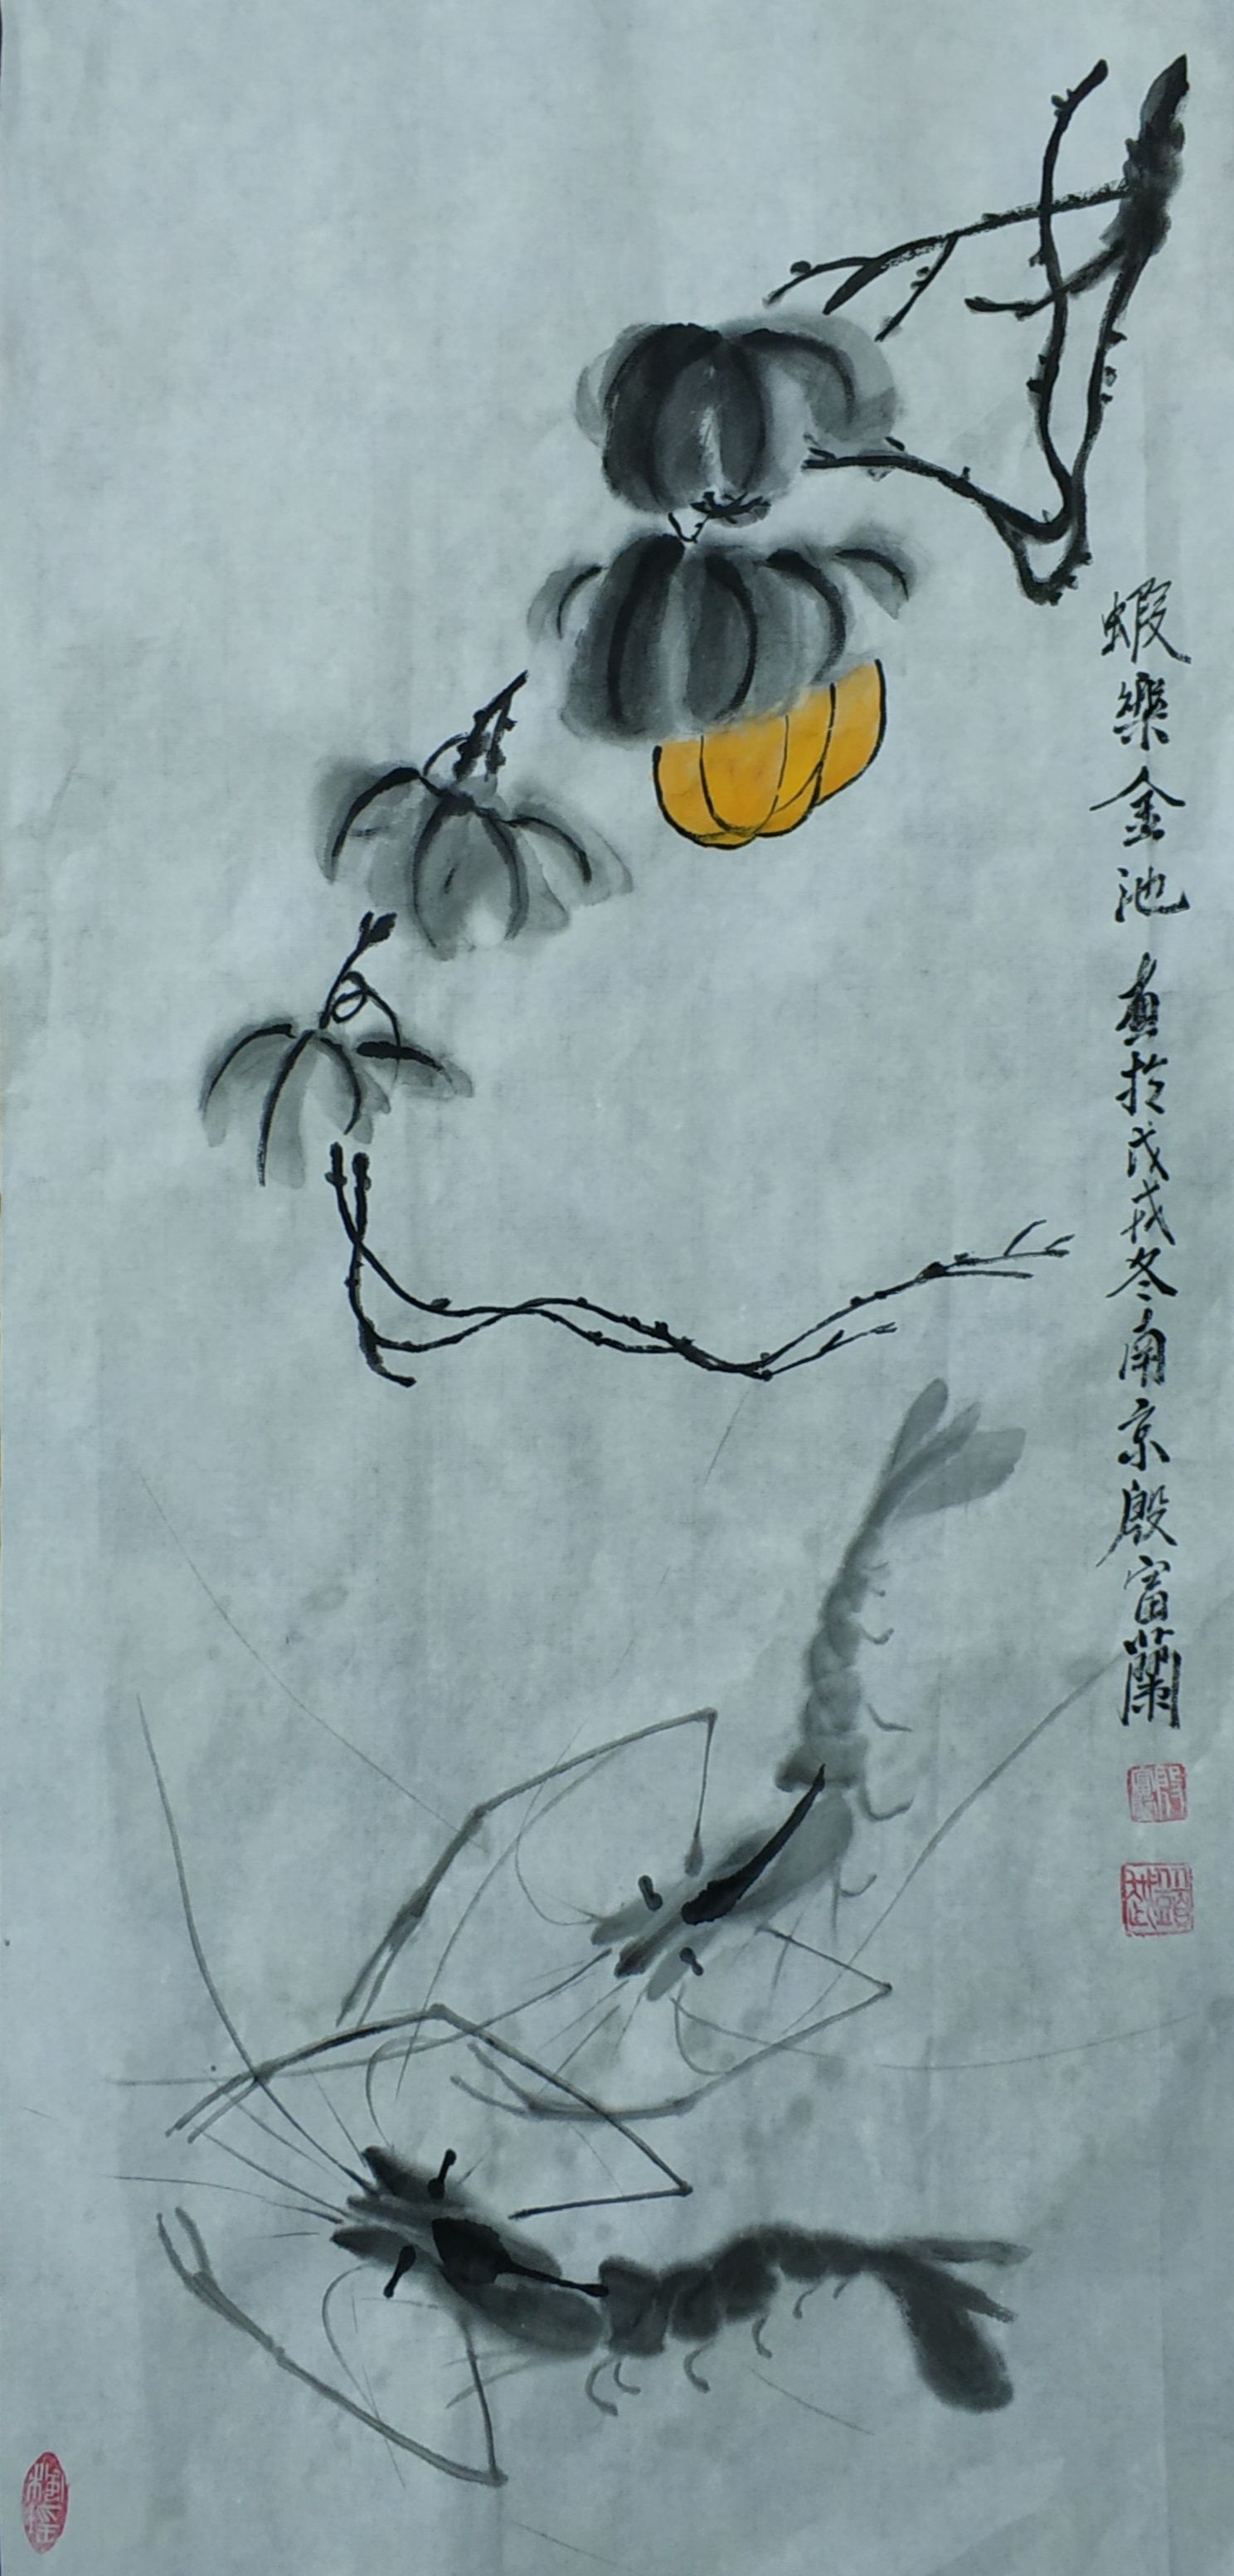 蝦樂金池 畫於戊戌冬南京殷富蘭